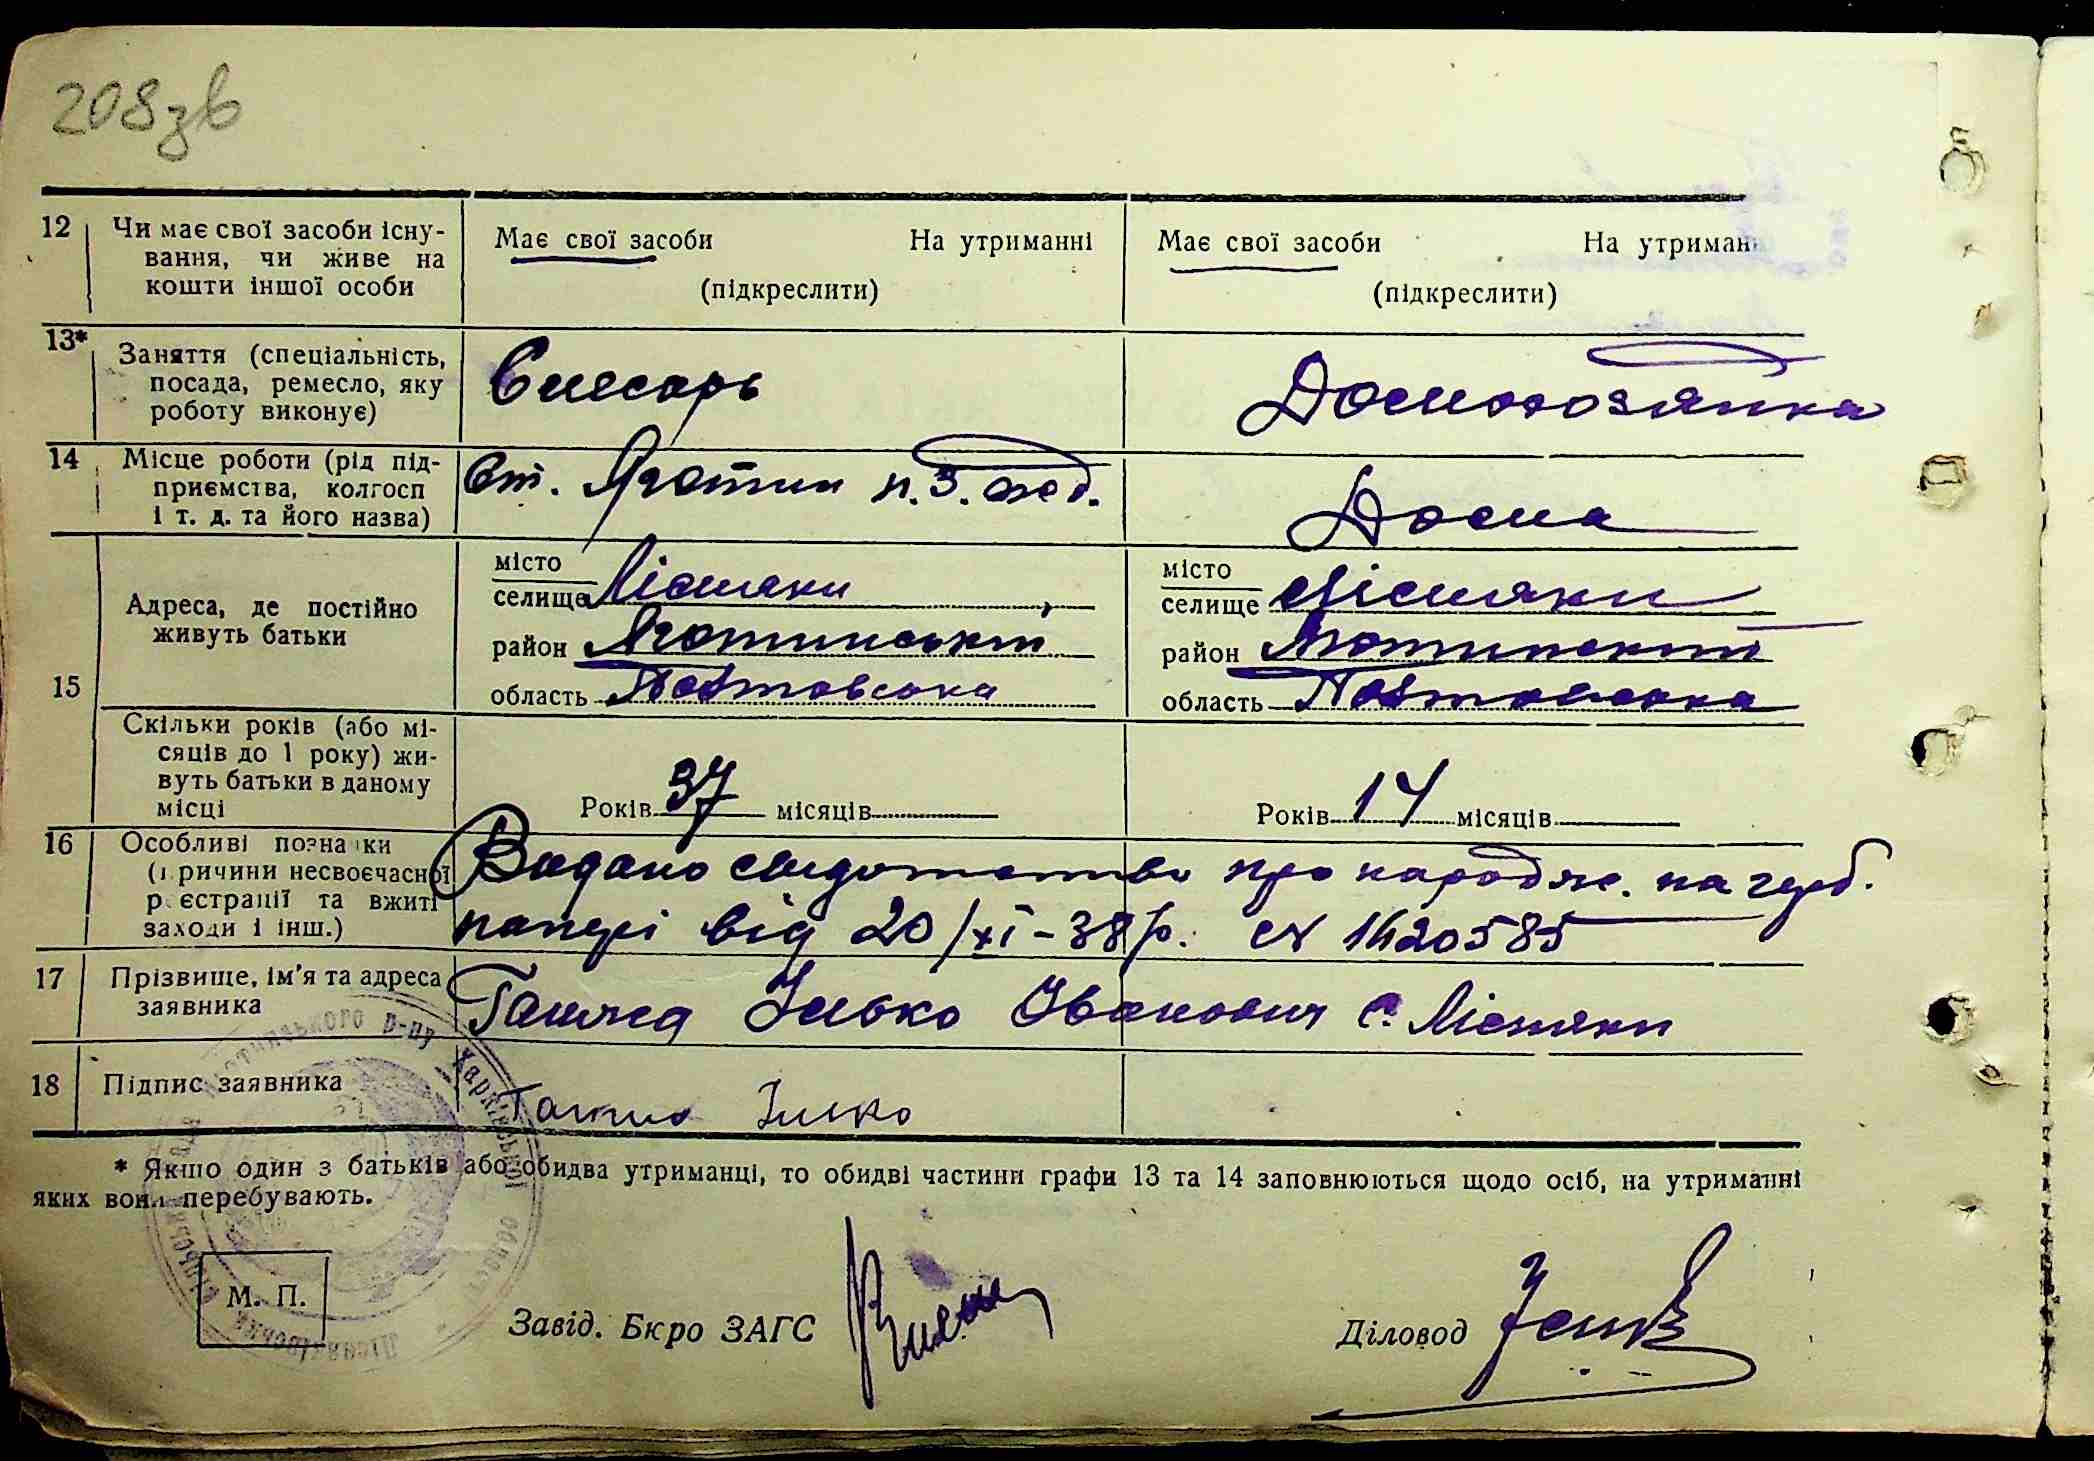 208зв
12 Чи має свої засоби існу-
вання, чи живе на
кошти іншої особи
Має свої засоби На утриманні
(підкреслити)
Має свої засоби На утриман
(підкреслити)
13* Заняття (спеціальність,
посада, ремесло, яку
роботу виконує)
Слюсарь
Домохозяйка
14 Місце роботи (рід під-
приємства, колгосп
і т. д. та його назва)
Ст. Яготин п.З. жел.
Дома
15 Адреса, де постійно
живуть батьки
місто
селище Лісняки
район Яготинський
область Полтавська
місто
селище Лісняки
район Яготинский
область Полтавська
Скільки років (або мі-
сяців до 1 року) жи-
вуть батьки в даному
місці
Років 37 місяців
Років 14 місяців
16 Особливі позначки
(причини несвоєчасної
реєстрації та вжиті
заходи і інш.)
Видано свидотство про народж. на герб.
папері від 20/XI-38 р. № 1420585
17 Прізвище, ім'я та адреса
заявника
Ілько Іванович с. Лісняки
18 Підпис заявника
Ілько
* Якщо один з батьків або обидва утриманці, то обидві частини графи 13 та 14 заповнюються щодо осіб, на утриманні
яких вони перебувають.
М. П.
Завід. Бюро ЗАГС
Діловод
р-ну Харківської області